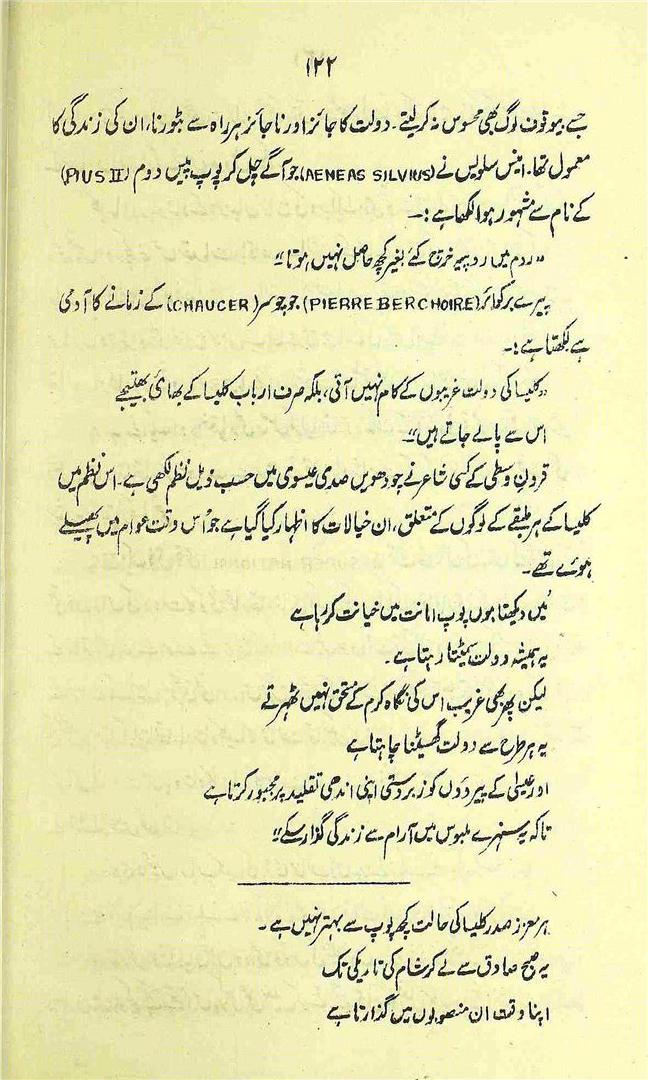 ۱۲۲
جسے بیوقوف لوگ بھی محسوس نہ کر لیتے۔ دولت کا جائز اور ناجائز ہر راہ سے بٹورنا، ان کی زندگی کا
معمول تھا۔ اینس سلویس نے (AENEAS SILVIUS) جو آگے چل کر پوپ پیس دوم (PIUS II)
کے نام سے مشہور ہوا لکھا ہے :۔
"روم میں روپیہ خرچ کئے بغیر کچھ حاصل نہیں ہوتا"
پیرے برکوائر (PIERRE BERCHOIRE) جو چوسر (CHAUCER) کے زمانے کا آدمی
ہے لکھتا ہے :۔
"کلیسا کی دولت غریبوں کے کام نہیں آتی، بلکہ صرف ارباب کلیسا کے بھائی بھتیجے
اس سے پالے جاتے ہیں"۔
قرونِ وسطیٰ کے کسی شاعر نے چودھویں صدی عیسوی میں حسب ذیل نظم لکھی ہے۔ اس نظم میں
کلیسا کے ہر طبقے کے لوگوں کے متعلق، ان خیالات کا اظہار کیا گیا ہے جو اُس وقت عوام میں پھیلے
ہوئے تھے۔
"میں دیکھتا ہوں پوپ امانت میں خیانت کر رہا ہے
یہ ہمیشہ دولت سمیٹتا رہتا ہے۔
لیکن پھر بھی غریب اس کی نگاہ کرم کے مستحق نہیں ٹھہرتے
یہ ہر طرح سے دولت گھسیٹنا چاہتا ہے
اور عیسیٰ کے پیروؤں کو زبردستی اپنی اندھی تقلید پر مجبور کرتا ہے
تاکہ یہ سنہرے ملبوس میں آرام سے زندگی گذار سکے"
ہر معزز صدر کلیسا کی حالت کچھ پوپ سے بہتر نہیں ہے۔
یہ صبح صادق سے لے کر شام کی تاریکی تک
اپنا وقت ان منصوبوں میں گذارتا ہے